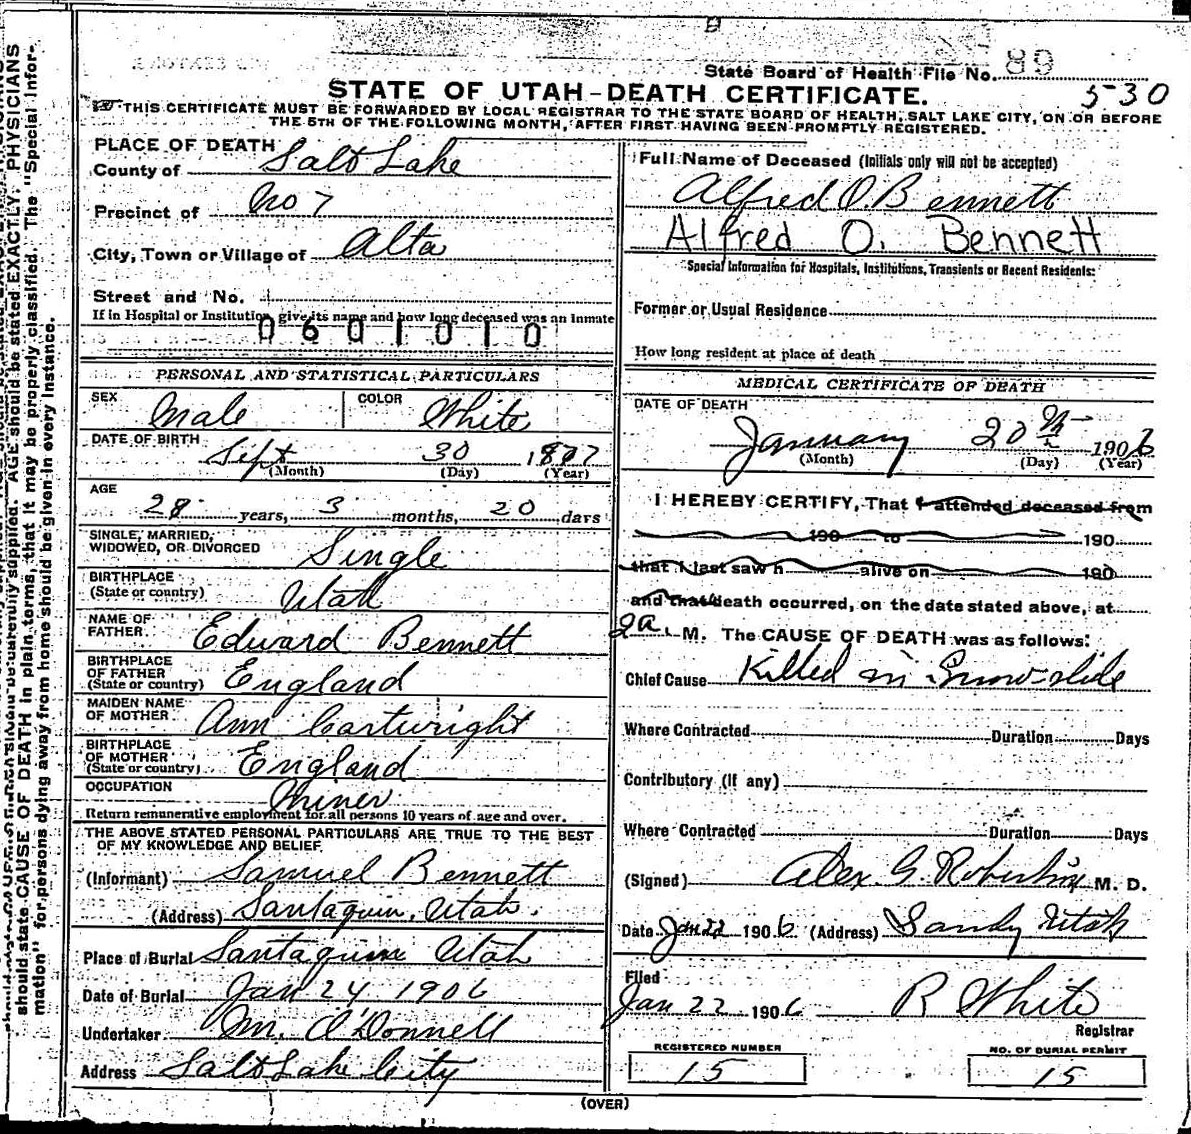 State Board of Health File No. 89
530
STATE OF UTAH-DEATH CERTIFICATE.
THIS CERTIFICATE MUST BE FORWARDED BY LOCAL REGISTRAR TO THE STATE BOARD OF HEALTH, SALT LAKE CITY, ON OR BEFORE
THE 5TH OF THE FOLLOWING MONTH, AFTER FIRST HAVING BEEN PROMPTLY REGISTERED.
PLACE OF DEATH
County of Salt Lake
Precinct of No 7
City, Town or Village of Alta
Street and No.
If in Hospital or Institution, give its name and how long deceased was an inmate
0601010
PERSONAL AND STATISTICAL PARTICULARS
SEX Male COLOR White
DATE OF BIRTH Sept 30 1877
(Month) (Day) (Year)
AGE
28 years, 3 months, 20 days
SINGLE, MARRIED,
WIDOWED, OR DIVORCED Single
BIRTHPLACE
(State or country) Utah
NAME OF
FATHER Edward Bennett
BIRTHPLACE
OF FATHER
(State or country) England
MAIDEN NAME
OF MOTHER Ann Cartwright
BIRTHPLACE
OF MOTHER
(State or country) England
OCCUPATION Miner
Return remunerative employment for all persons 10 years of age and over.
THE ABOVE STATED PERSONAL PARTICULARS ARE TRUE TO THE BEST
OF MY KNOWLEDGE AND BELIEF.
(Informant) Samuel Bennett
(Address) Santaquin, Utah.
Place of Burial Santaquin Utah
Date of Burial Jan 24 1906
Undertaker M. O'Donnell
Address Salt Lake City
Full Name of Deceased (Initials only will not be accepted)
Alfred O. Bennett
Alfred O. Bennett
Special Information for Hospitals, Institutions, Transients or Recent Residents:
Former or Usual Residence
How long resident at place of death
MEDICAL CERTIFICATE OF DEATH
DATE OF DEATH
January 20th 1906
(Month) (Day) (Year)
I HEREBY CERTIFY, That I attended deceased from
190 to 190
that I last saw h alive on 190
and that death occurred, on the date stated above, at
2a. M. The CAUSE OF DEATH was as follows:
Chief Cause Killed in Snow-slide
Where Contracted Duration Days
Contributory (if any)
Where Contracted Duration Days
(Signed) Alex. G. Robertson M. D.
Date Jan 22 1906 (Address) Sandy Utah
Filed
Jan 22 1906 R White
Registrar
REGISTERED NUMBER
15
NO. OF BURIAL PERMIT
15
(OVER)
should state CAUSE OF DEATH in plain terms, that it may be properly classified. The "Special Infor-
mation" for persons dying away from home should be given in every instance.
AGE should be stated EXACTLY. PHYSICIANS